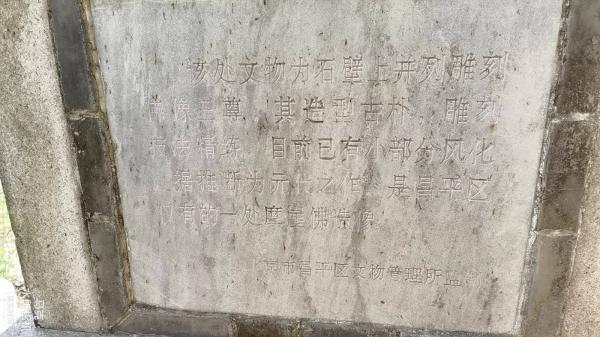 该处文物为石壁上并列雕刻
佛像三尊，其造型古朴，雕刻
精练，目前已有小部分风化
据推断为元代之作，是昌平区
有的一处摩崖佛造像
京市昌平区文物管理所监制